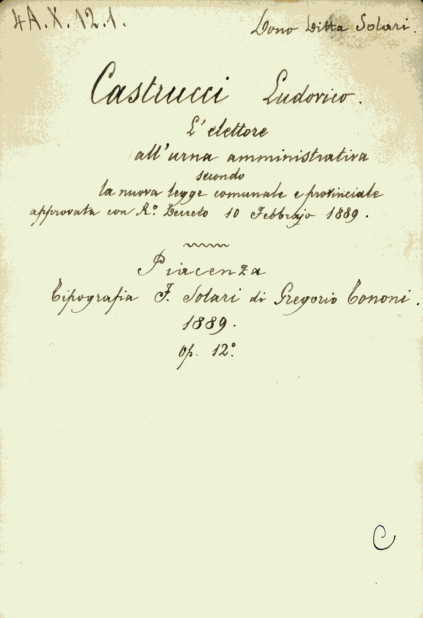 4A.X.12.1.
Dono Ditta Solari.
Castrucci Ludovico.
L'elettore
all'urna amministrativa
secondo
la nuova legge comunale e provinciale
approvata con R.º Decreto 10 Febbrajo 1889.
Piacenza
Tipografia F. Solari di Gregorio Tononi.
1889.
op. 12º.
C